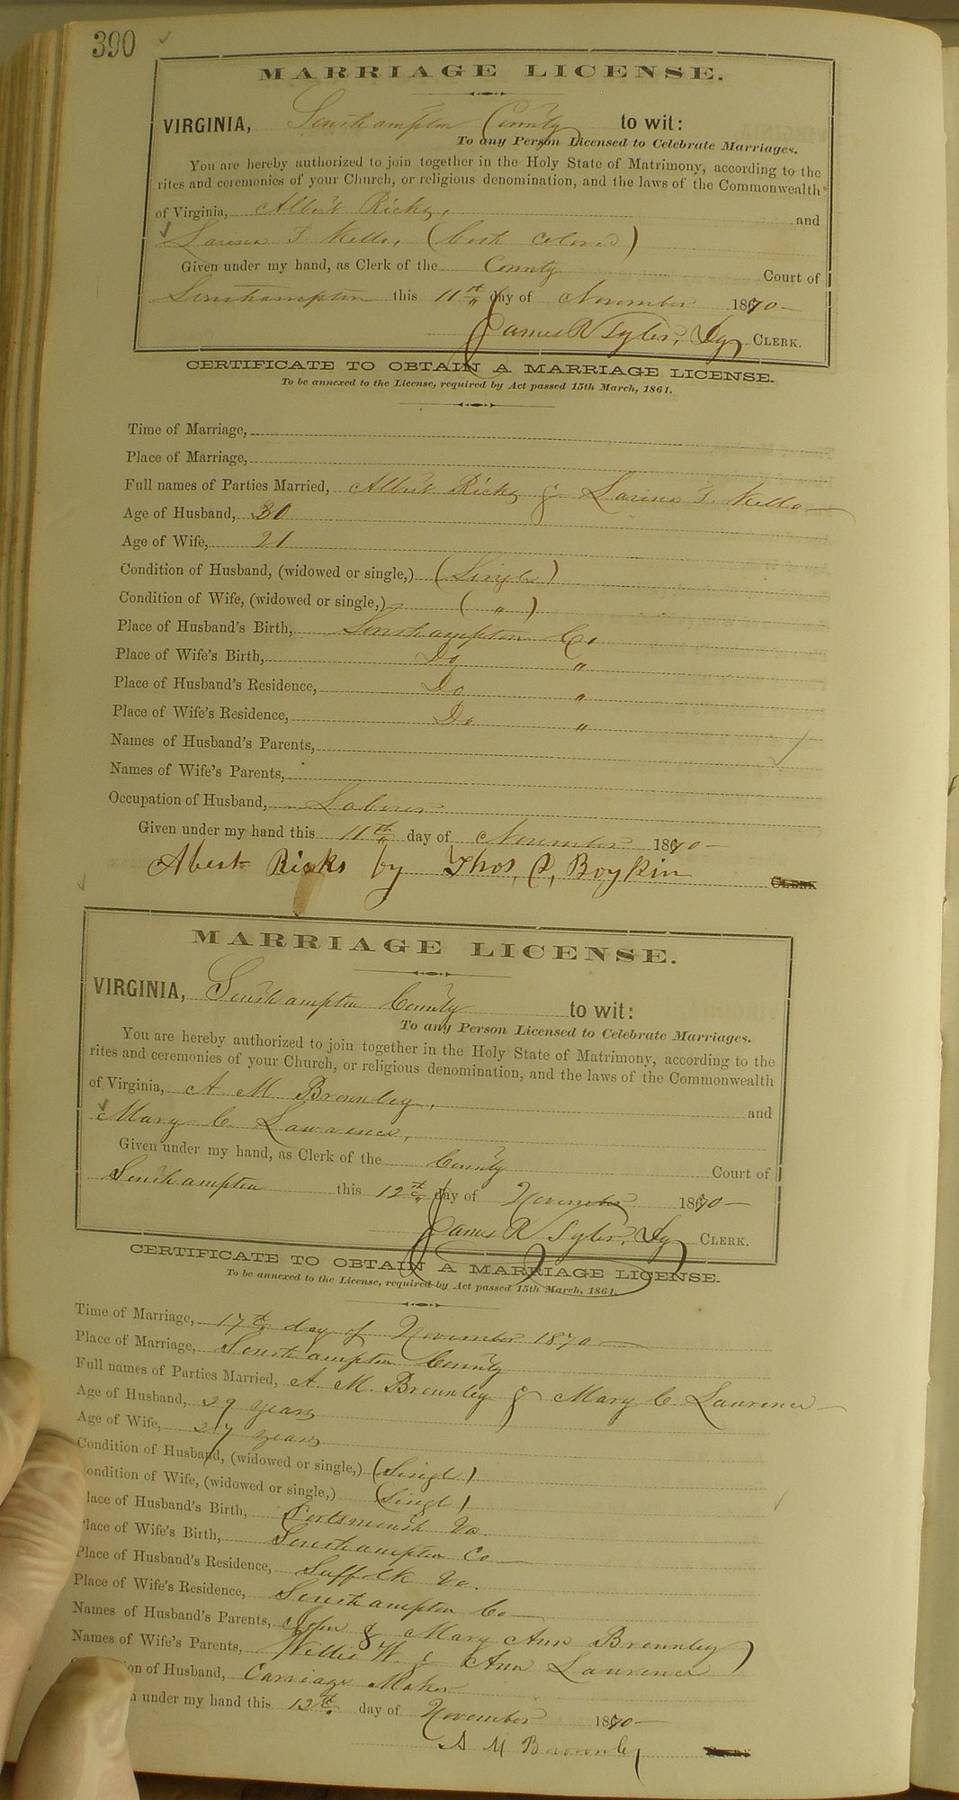 390
MARRIAGE LICENSE.
VIRGINIA, Southampton County to wit:
To any Person Licensed to Celebrate Marriages.
You are hereby authorized to join together in the Holy State of Matrimony, according to the
rites and ceremonies of your Church, or religious denomination, and the laws of the Commonwealth
of Virginia, Albert Ricks, and
F Kello, (both colored)
Given under my hand, as Clerk of the County Court of
Southampton this 11th day of November 1870
James R Tyler, Dy CLERK.
CERTIFICATE TO OBTAIN A MARRIAGE LICENSE.
To be annexed to the License, required by Act passed 15th March, 1861.
Time of Marriage,
Place of Marriage,
Full names of Parties Married, Albert Ricks & Kello
Age of Husband, 30
Age of Wife, 21
Condition of Husband, (widowed or single,) (Single)
Condition of Wife, (widowed or single,) ( " )
Place of Husband's Birth, Southampton Co.
Place of Wife's Birth, Do "
Place of Husband's Residence, Do "
Place of Wife's Residence, Do "
Names of Husband's Parents,
Names of Wife's Parents,
Occupation of Husband, Laborer
Given under my hand this 11th day of November 1870
Albert Ricks by Thos. P. Boykin CLERK
MARRIAGE LICENSE.
VIRGINIA, Southampton County to wit:
To any Person Licensed to Celebrate Marriages.
You are hereby authorized to join together in the Holy State of Matrimony, according to the
rites and ceremonies of your Church, or religious denomination, and the laws of the Commonwealth
of Virginia, A M Brownley, and
Mary C. Lawrence,
Given under my hand, as Clerk of the County Court of
Southampton this 12th day of November 1870
James R Tyler, Dy CLERK.
CERTIFICATE TO OBTAIN A MARRIAGE LICENSE.
To be annexed to the License, required by Act passed 15th March, 1861.
Time of Marriage, 17th day of November 1870
Place of Marriage, Southampton County
Full names of Parties Married, A. M. Brownley & Mary C. Lawrence
Age of Husband, 29 years
Age of Wife, 27 years
Condition of Husband, (widowed or single,) (Single)
Condition of Wife, (widowed or single,) (Single)
Place of Husband's Birth, Portsmouth Va.
Place of Wife's Birth, Southampton Co
Place of Husband's Residence, Suffolk Va.
Place of Wife's Residence, Southampton Co
Names of Husband's Parents, John & Mary Ann Brownley
Names of Wife's Parents, Willie W & Ann Lawrence
on of Husband, Carriage Maker
under my hand this 12th day of November 1870
A M Brownley